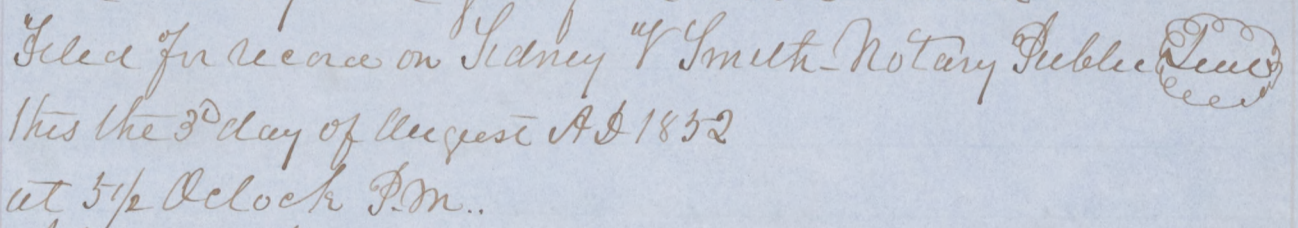 Filed for record on Sidney V Smith - Notary Public Seal
this the 3d day of August AD 1852
at 5 1/2 Oclock P.M..